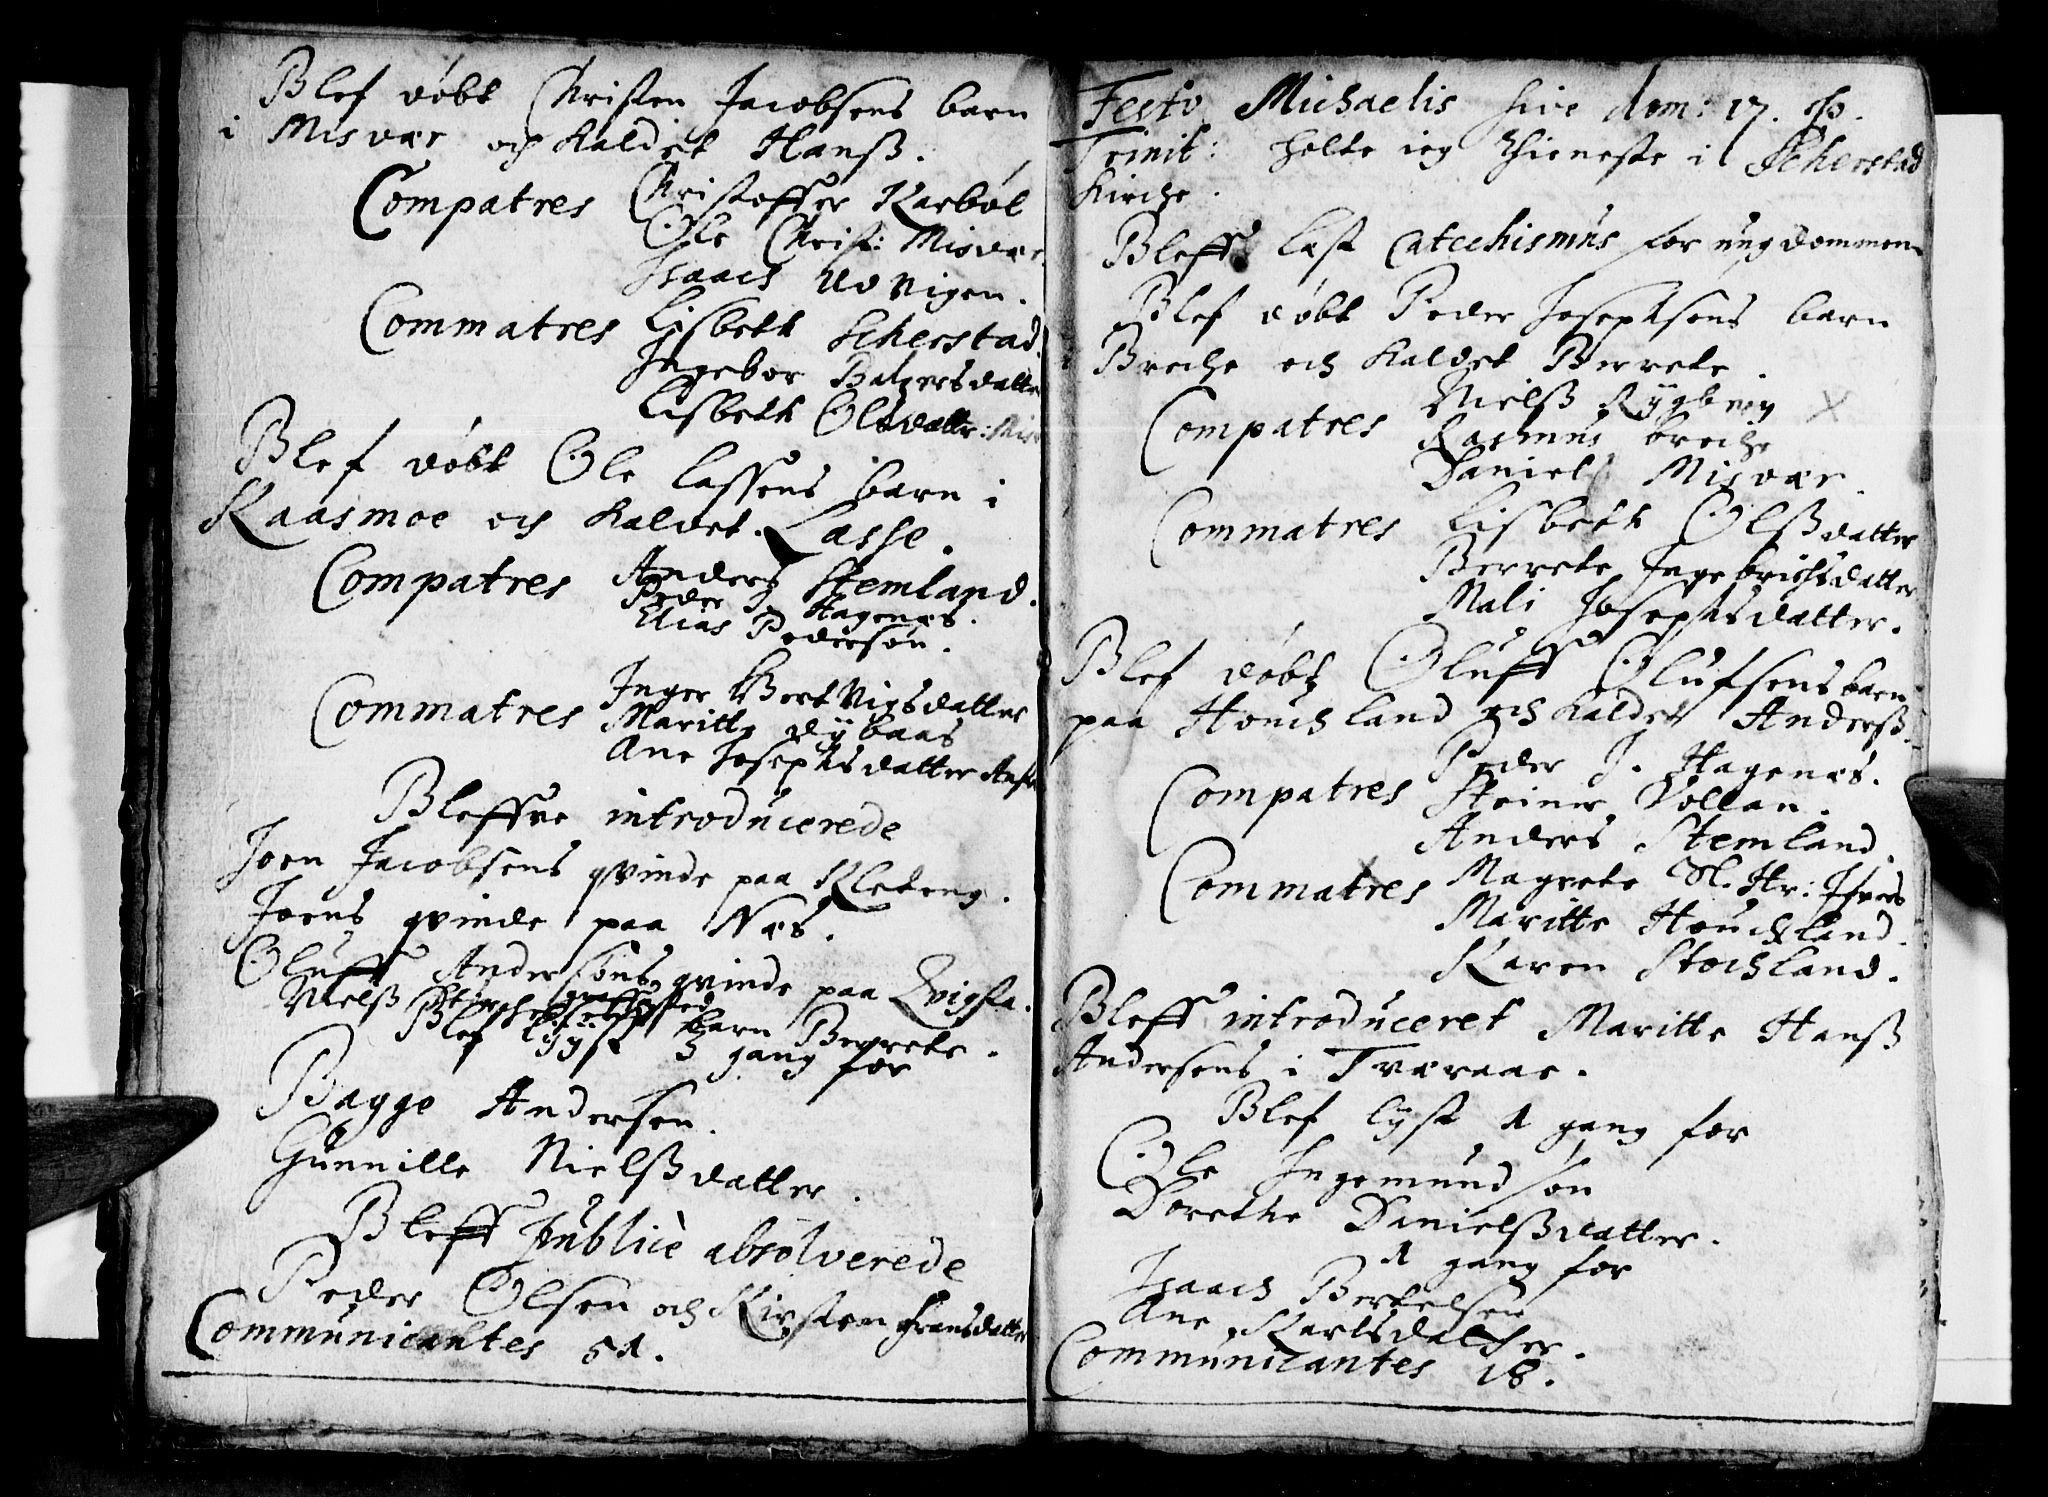 Blef døbt Christen Jacobsens barn
i Misvær och Kaldet Hanß.
Compatres Christoffer Karbøl
Ole Christ: Misvær.
Isaach Udvigen.
Commatres Lisbeth Scherstad.
Ingebor Balzersdatter
Lisbeth Olsdatter: Mis
Blef døbt Ole Lassens barn i
Kaasmoe och Kaldet. Lasse.
Compatres Anders Stemland.
Peder J. Hagenæs.
Elias Pedersøn.
Commatres Inger Hertvigsdatter
Maritte Dybaas
Ane Josephsdatter
Bleffue introducerede
Joen Jacobsens qvinde paa Kleteng.
Joens qvinde paa Næs.
Oluff Andersøns qvinde paa
Nielß
barn Berrete.
Blef lyst 3 gang for
Bagge Andersen.
Gunnille Nielßdatter.
Bleff publicè absolverede
Peder Olsen och Kirsten Fransdatter
Communicantes 51.
Festo Michaelis sive dom: 17. p.
Trinit: holte ieg thieneste i Scherstad
Kirche.
Bleff læst Catechismus for ungdommen
Blef døbt Peder Josephsens barn
i Breche och Kaldet Berrete.
Compatres Nielß Rygbrey
Rasmus breche
Daniel Misvær.
Commatres Lisbeth Olßdatter
Berrete Ingebrichsdatter
Mali Josephsdatter.
Blef døbt Oluff Olufsens barn
paa Houchland och Kaldet Anderß.
Compatres Peder J. Hagenæs.
Steiner Vollan.
Anders Stemland.
Commatres Magrete Sl. Hr: Ifvers
Maritte Houchland.
Karen Stochland.
Bleff introduceret Maritte Hanß
Andersens i Tværaae.
Blef lyst 1 gang for
Ole Ingemundsøn
Dorethe Danielßdatter.
1 gang for
Isaach Bertelsen
Ane Karlsdatther.
Communicantes 18.